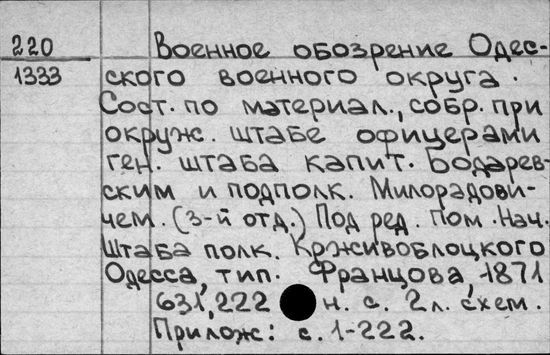 220
1333
Военное обозрение Одес-
ского военного округа.
Сост. по материал., собр. при
окруж. штабе офицерами
ген. штаба капит. Бодарев-
ским и подполк. Милорадови-
чем. (3-й отд.) Под ред. пом. Нач.
Штаба полк. Крживоблоцкого
Одесса, тип. Францова, 1871
631,222 н. с. 2 л. схем.
Прилож: с. 1-222.